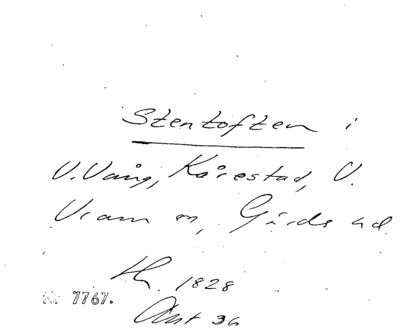 Stentoften i
V. Vång, Kårestad, V.
Vram sn, Gärds hd.
1828
Nr 7767.
Akt 36